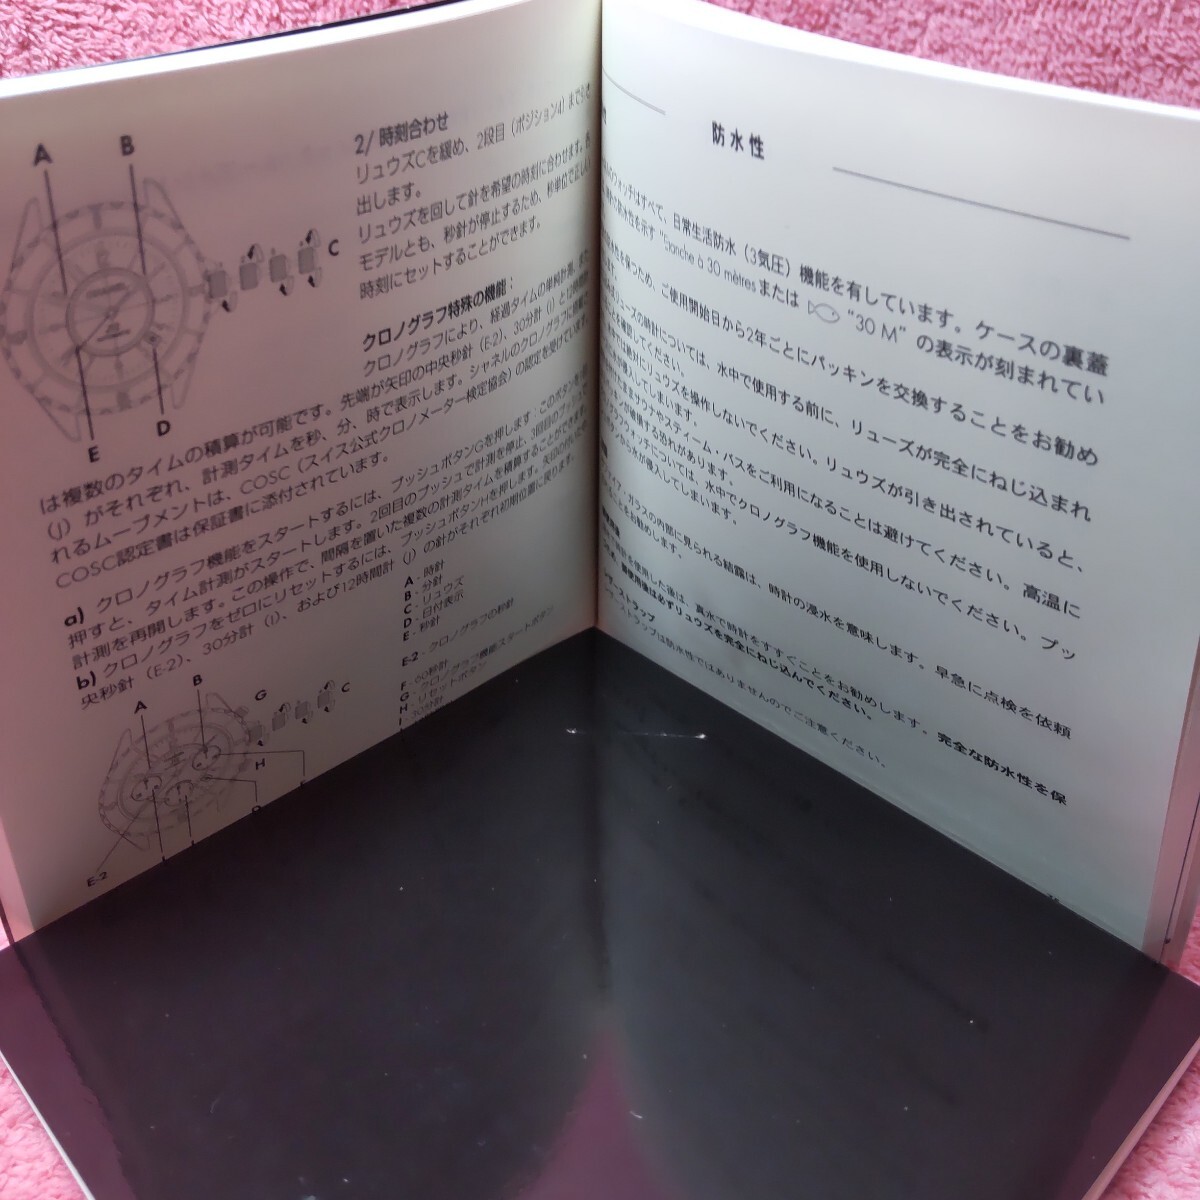 A
B
C
E
D
2/ 時刻合わせ
リュウズCを緩め、2段目 (ポジション4) まで引き
出します。
リュウズを回して針を希望の時刻に合わせます。
モデルとも、秒針が停止するため、秒単位で正しい
時刻にセットすることができます。
クロノグラフ特殊の機能 :
クロノグラフにより、経過タイムの単純計測、
は複数のタイムの積算が可能です。先端が矢印の中央秒針 (E-2)、30分計 (I) と12時間計
(J) がそれぞれ、計測タイムを秒、分、時で表示します。シャネルのクロノグラフに搭載
れるムーブメントは、COSC (スイス公式クロノメーター検定協会) の認定を受けています
COSC認定書は保証書に添付されています。
a) クロノグラフ機能をスタートするには、プッシュボタンGを押します : このボタンを
押すと、タイム計測がスタートします。2回目のプッシュで計測を停止、3回目のプッシュ
計測を再開します。この操作で、間隔を置いた複数の計測タイムを積算することができ
b) クロノグラフをゼロにリセットするには、プッシュボタンHを押します。矢印の
央秒針 (E-2)、30分計 (I)、および12時間計 (J) の針がそれぞれ初期位置に戻ります。
A - 時針
B - 分針
C - リュウズ
D - 日付表示
E - 秒針
E-2 - クロノグラフの秒針
F - 60秒計
G - クロノグラフ機能スタートボタン
H - リセットボタン
I - 30分計
A
B
G
C
H
E-2
防水性
ウォッチはすべて、日常生活防水 (3気圧) 機能を有しています。ケースの裏蓋
防水性を示す "Etanche à 30 mètres または "30 M" の表示が刻まれてい
性を保つため、ご使用開始日から2年ごとにパッキンを交換することをお勧め
リューズの時計については、水中で使用する前に、リューズが完全にねじ込まれ
を確認してください。
では絶対にリュウズを操作しないでください。リュウズが引き出されていると、
が浸入してしまいます。
ままサウナやスティーム・バスをご利用になることは避けてください。高温に
が破損する恐れがあります。
ラフウォッチについては、水中でクロノグラフ機能を使用しないでください。プッ
ンから水が浸入してしまいます。
ファイア・ガラスの内部に見られる結露は、時計の浸水を意味します。早急に点検を依頼
ことをお勧めします。
時計を使用した後は、真水で時計をすすぐことをお勧めします。完全な防水性を保
使用後は必ずリュウズを完全にねじ込んでください。
ザーストラップ
ストラップは防水性ではありませんのでご注意ください。